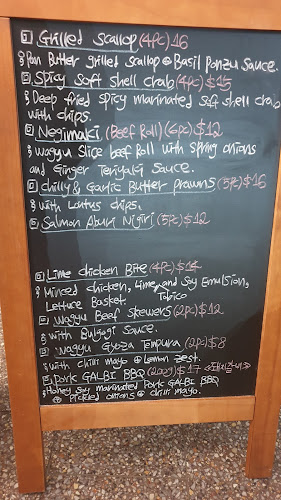 Grilled Scallop (4pc) 16
Pan Butter grilled scallop ⊕ Basil Ponzu Sauce.
Spicy Soft shell crab (4pc) $15
Deep fried spicy marinated soft shell crab
with chips.
Negimaki (Beef Roll) (6pc) $12
Wagyu Slice beef Roll with Spring onions
and Ginger Teriyaki Sauce.
Chilly & Garlic Butter prawns (5pc) $16
with Loutus chips.
Salmon Aburi Nigiri (5pc) $12
Lime chicken Bite (4pc) $14
Minced chicken, Lime, and Soy Emulsion,
Lettuce Basket. Tobico
Wagyu Beef Skewers (2pc) $12
with Bulgogi Sauce.
Wagyu Gyoza Tempura (2pc) $8
with chilli mayo ⊕ Lemon zest.
Pork GALBI BBQ (200g) $17
Honey Soy marinated Pork GALBI BBQ
⊕ Pickled onions ⊕ chilli mayo.